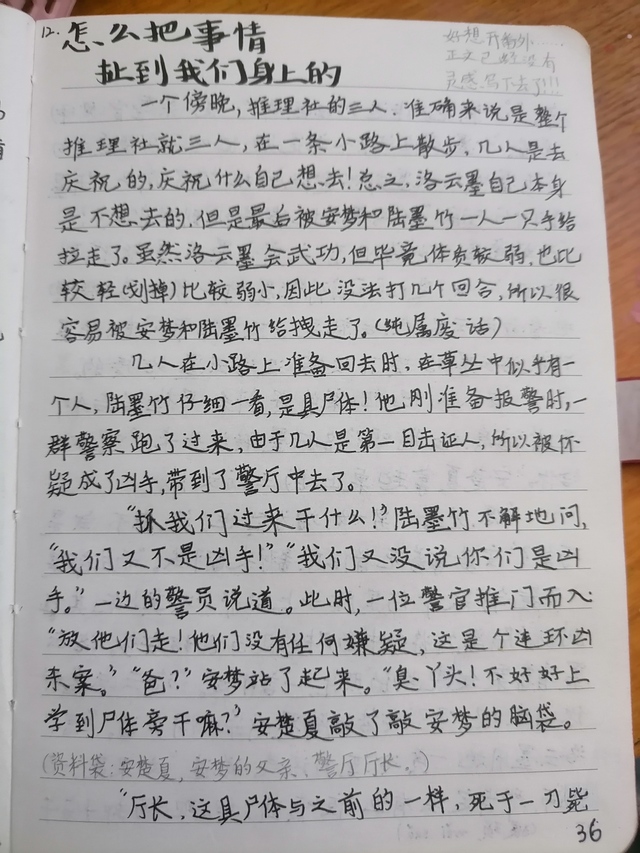 12. 怎么把事情
扯到我们身上的
好想开番外……
正文已经没有
灵感写下去了!!!
一个傍晚，推理社的三人.准确来说是整个
推理社就三人，在一条小路上散步，几人是去
庆祝的，庆祝什么自己想去!总之，洛云墨自己本身
是不想去的，但是最后被安梦和陆墨竹一人一只手给
拉走了。虽然洛云墨会武功，但毕竟体质较弱，也比
较轻(划掉)比较弱小，因此没法打几个回合，所以很
容易被安梦和陆墨竹给拽走了。(纯属废话)
几人在小路上准备回去时，在草丛中似乎有一
个人，陆墨竹仔细一看，是具尸体!他刚准备报警时，一
群警察跑了过来，由于几人是第一目击证人，所以被怀
疑成了凶手，带到了警厅中去了。
“抓我们过来干什么!”陆墨竹不解地问，
“我们又不是凶手!”“我们又没说你们是凶
手。”一边的警员说道。此时，一位警官推门而入
“放他们走!他们没有任何嫌疑，这是个连环凶
杀案。”“爸?”安梦站了起来。“臭丫头!不好好上
学到尸体旁干嘛?”安楚夏敲了敲安梦的脑袋。
(资料袋:安楚夏，安梦的父亲、警厅厅长。)
“厅长，这具尸体与之前的一样，死于一刀毙
36